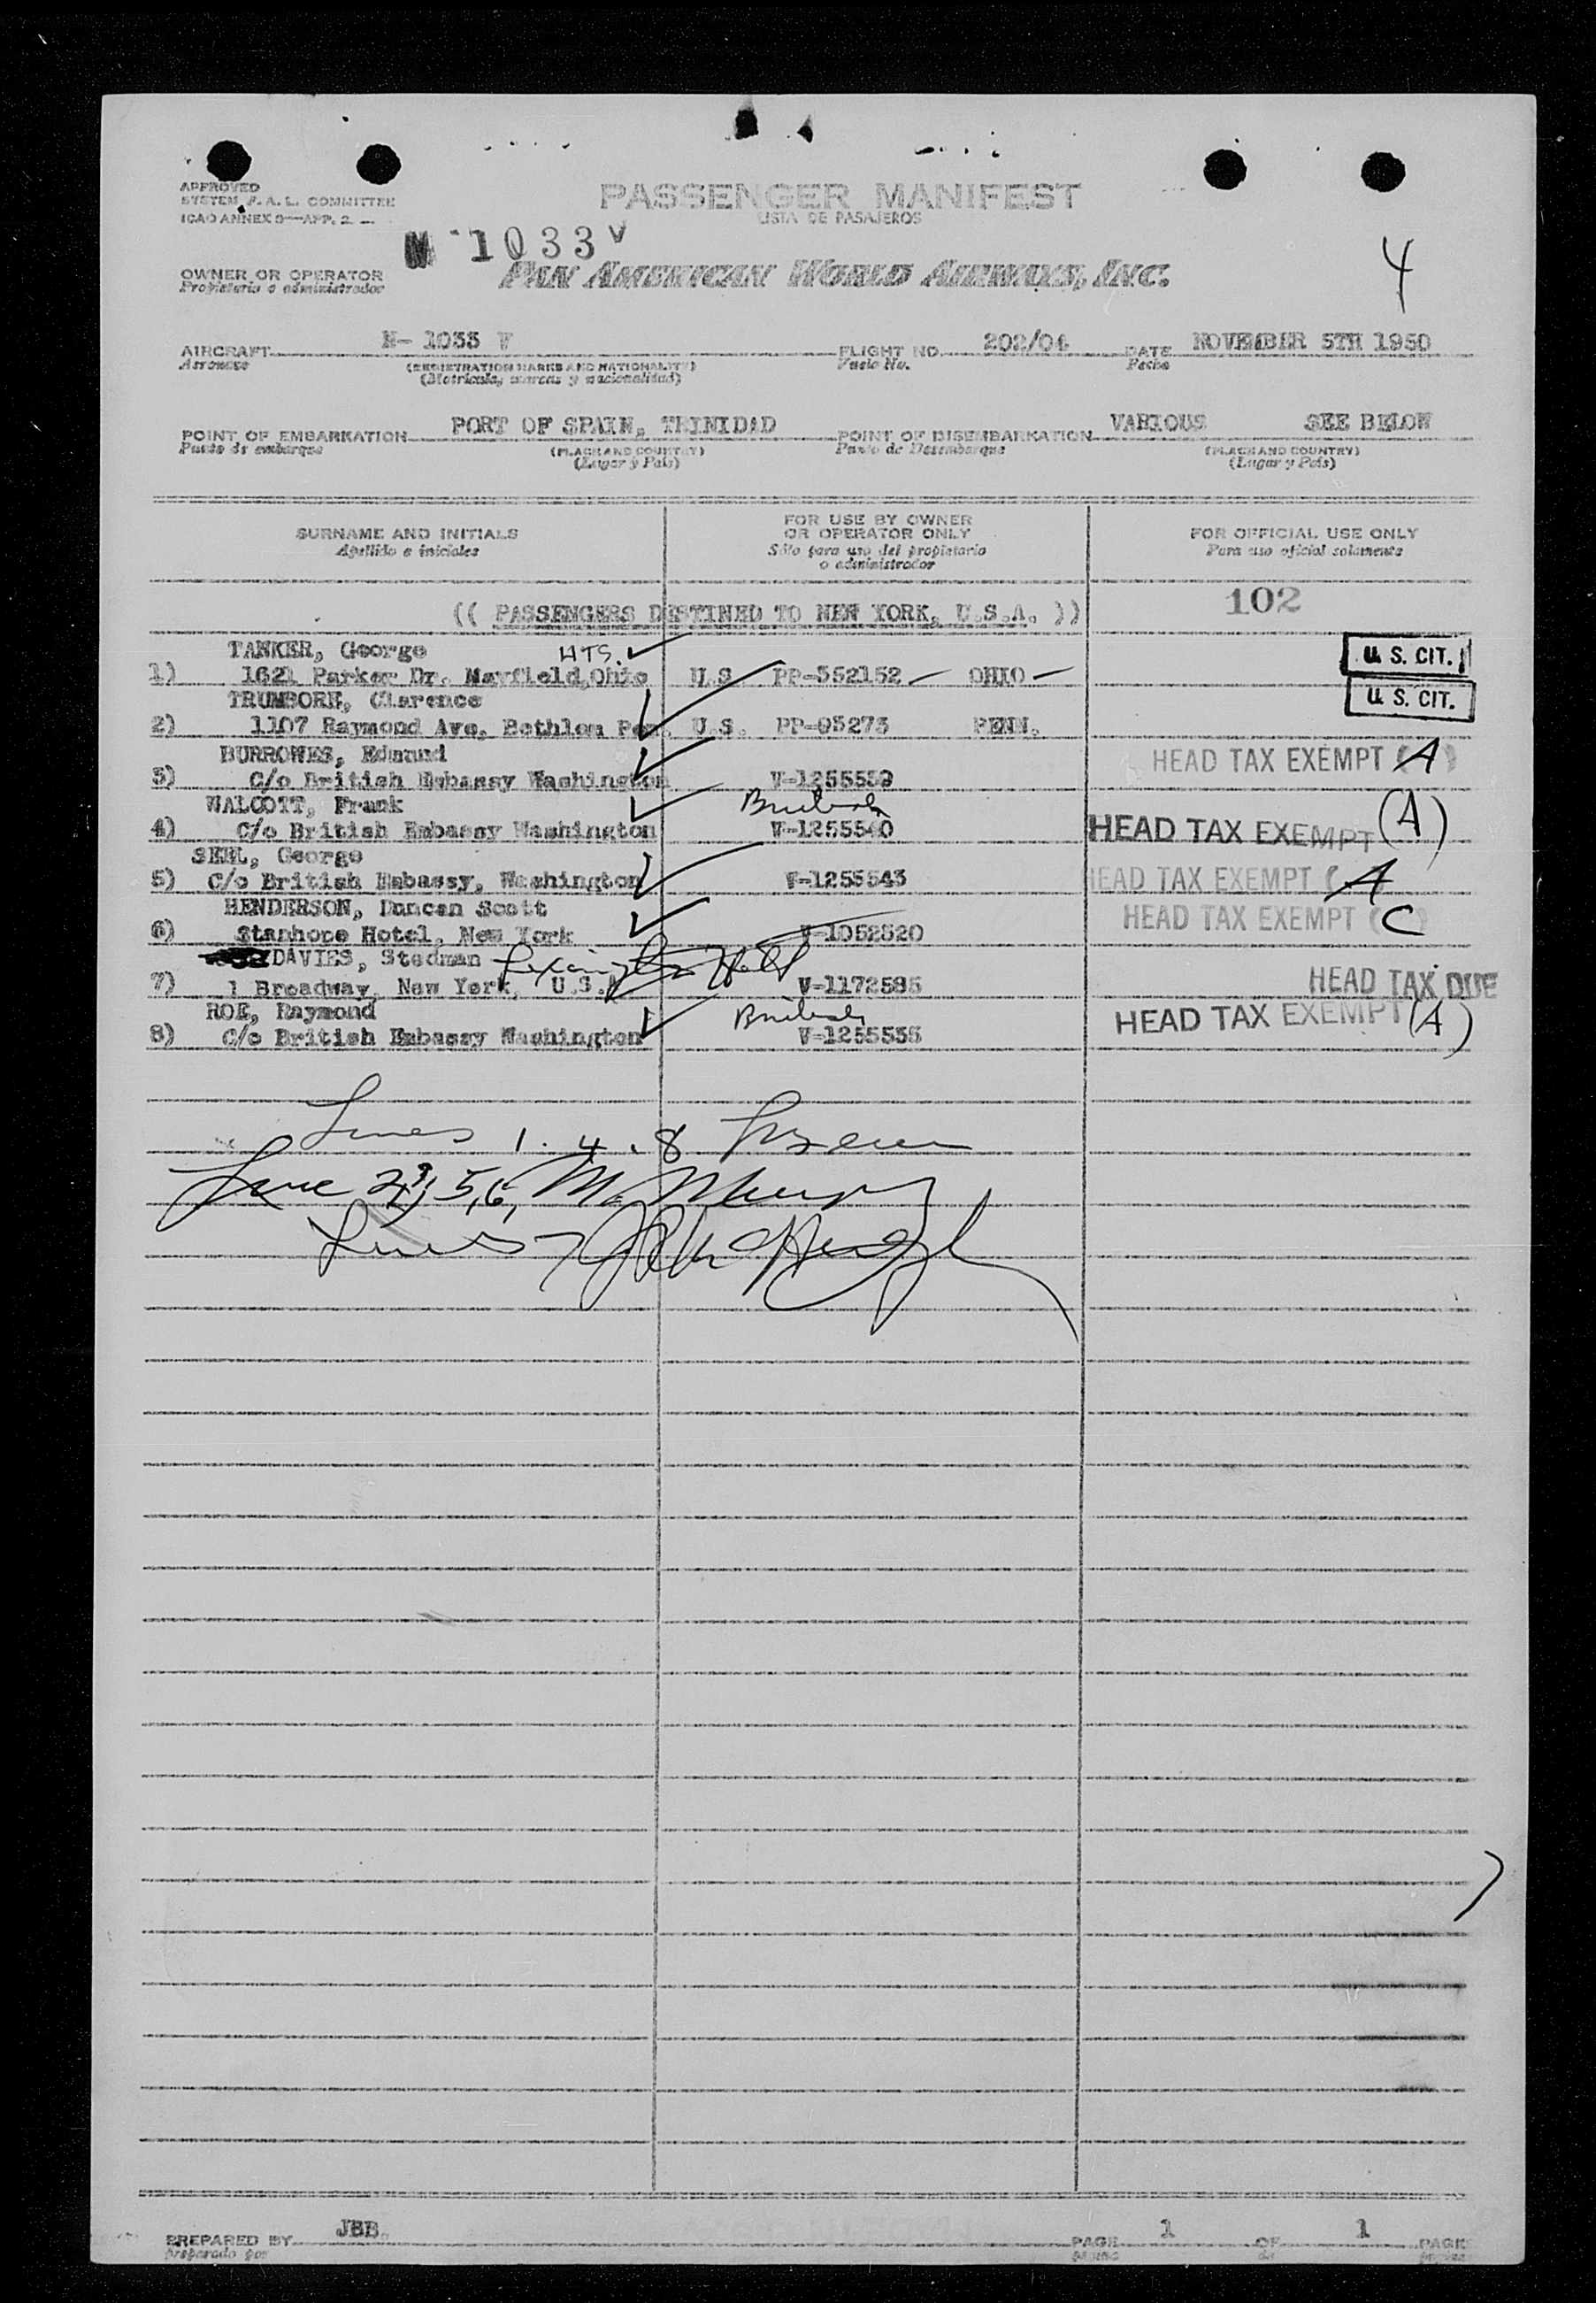 APPROVED
SYSTEM F. A. L. COMMITTEE
ICAO ANNEX 9—APP. 2
PASSENGER MANIFEST
LISTA DE PASAJEROS
N-1033V
4
OWNER OR OPERATOR
Propietario o administrador
PAN AMERICAN WORLD AIRWAYS, INC.
AIRCRAFT N- 1033 V FLIGHT NO. 202/04 DATE NOVEMBER 5TH 1950
Aeronave (REGISTRATION MARKS AND NATIONALITY) Vuelo No. Fecha
(Matricula, marcas y nacionalidad)
POINT OF EMBARKATION PORT OF SPAIN, TRINIDAD POINT OF DISEMBARKATION VARIOUS SEE BELOW
Punto de embarque (PLACE AND COUNTRY) Punto de Desembarque (PLACE AND COUNTRY)
(Lugar y País) (Lugar y País)
SURNAME AND INITIALS FOR USE BY OWNER OR OPERATOR ONLY FOR OFFICIAL USE ONLY
Apellido e iniciales Sólo para uso del propietario o administrador Para uso oficial solamente
(( PASSENGERS DESTINED TO NEW YORK, U.S.A. )) 102
TANKER, George HTS. U. S. CIT.
1) 1621 Parker Dr. Mayfield, Ohio U.S. PP-552152 OHIO
TRUMBORE, Clarence U. S. CIT.
2) 1107 Raymond Ave, Bethlem Pen. U.S. PP-95273 PENN.
BURROWES, Edmund HEAD TAX EXEMPT (A)
3) C/o British Embassy Washington V-1255539
WALCOTT, Frank British
4) C/o British Embassy Washington V-1255540 HEAD TAX EXEMPT (A)
SEHL, George
5) C/o British Embassy, Washington V-1255543 HEAD TAX EXEMPT (A
HENDERSON, Duncan Scott HEAD TAX EXEMPT (C)
6) Stanhope Hotel, New York V-1052520
DAVIES, Stedman Lexington Hotel HEAD TAX DUE
7) 1 Broadway, New York, U.S.A V-1172585
ROE, Raymond British HEAD TAX EXEMPT (A)
8) C/o British Embassy Washington V-1255535
Lines 1. 4. 8
Line 2, 3, 5, 6,
Lines 7
PREPARED BY JBB. PAGE 1 OF 1 PAGE
Preparado por